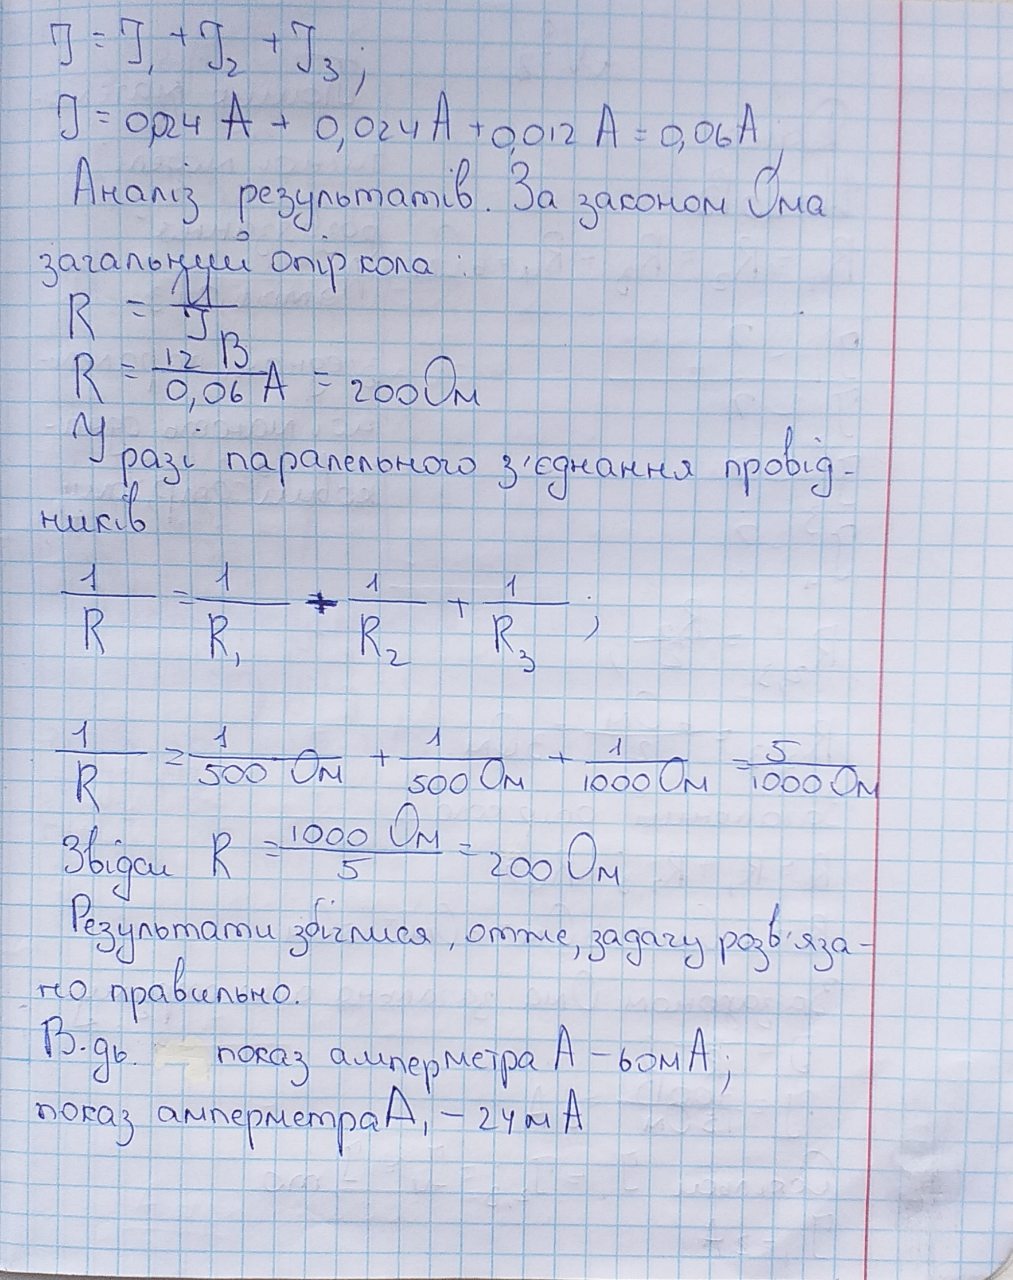 I = I₁ + I₂ + I₃;
I = 0,024 А + 0,024 А + 0,012 А = 0,06 А
Аналіз результатів. За законом Ома
загальний опір кола :
R = U/I
R = 12 В/0,06 А = 200 Ом
У разі паралельного з'єднання провід-
ників
1/R = 1/R₁ + 1/R₂ + 1/R₃ ;
1/R = 1/500 Ом + 1/500 Ом + 1/1000 Ом = 5/1000 Ом
Звідси R = 1000 Ом/5 = 200 Ом
Результати збіглися, отже, задачу розв'яза-
но правильно.
В-дь. показ амперметра А – 60 мА;
показ амперметра А₁ – 24 мА